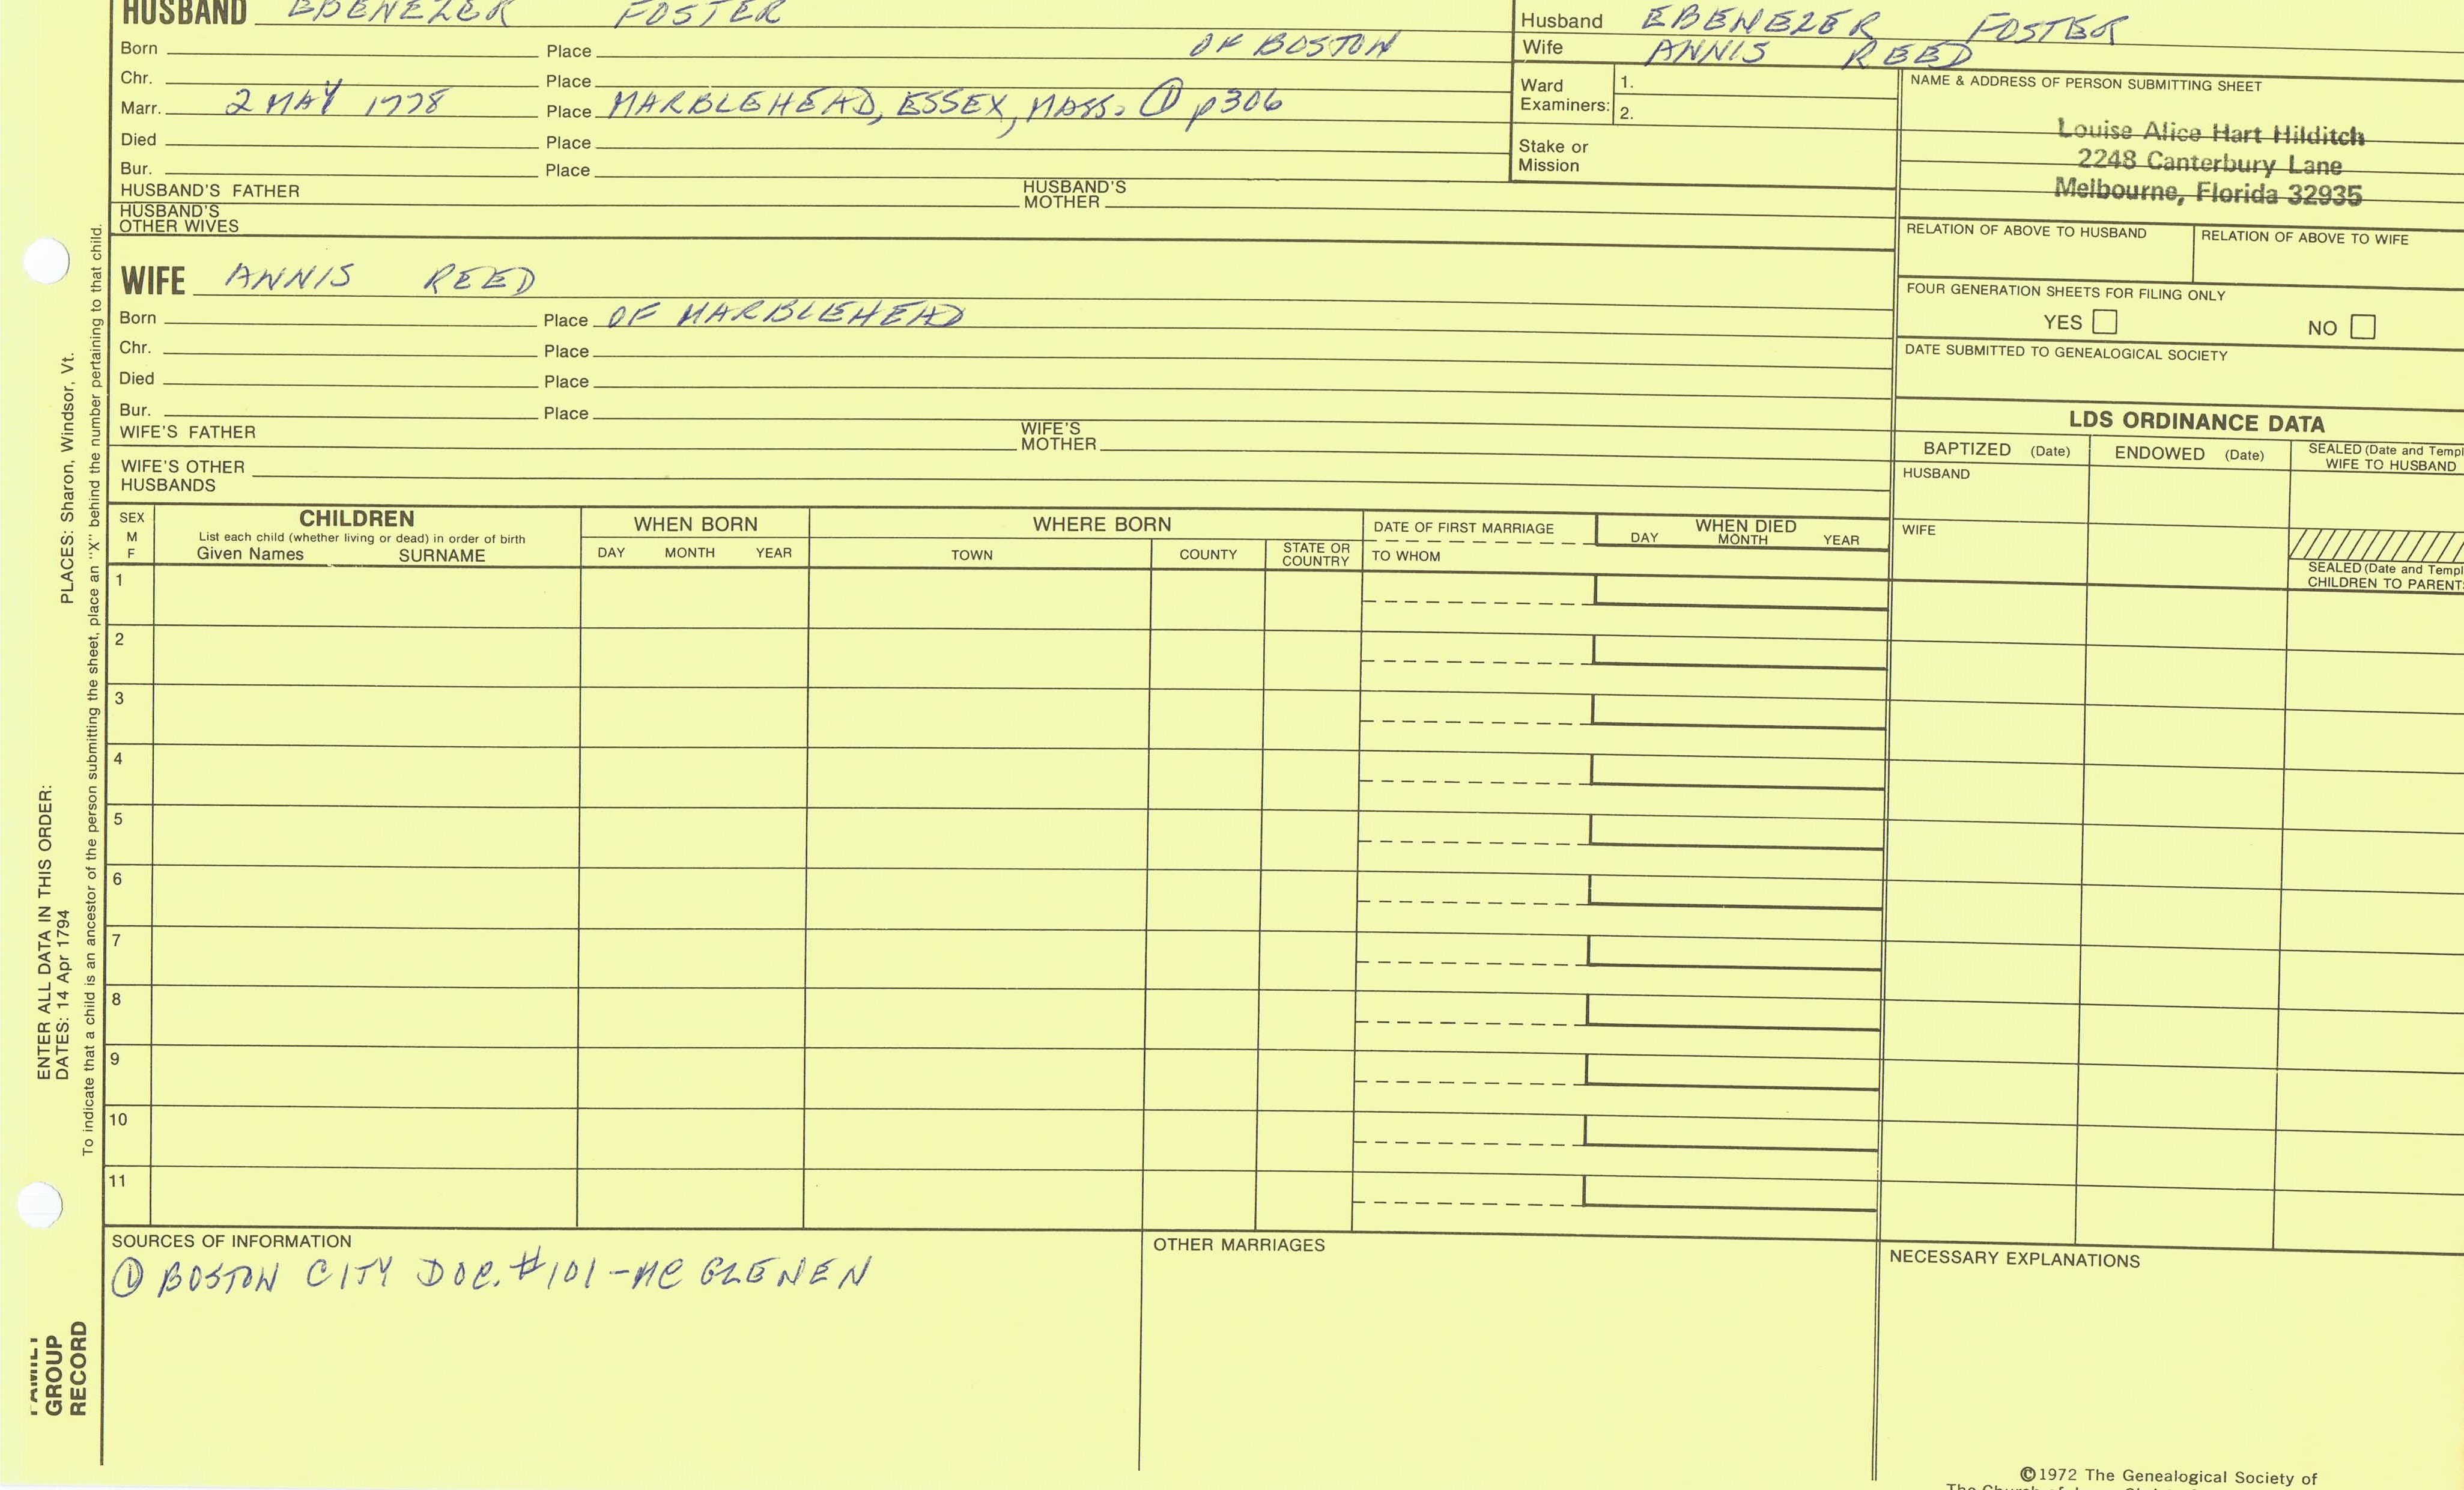 HUSBAND EBENEZER FOSTER
Born Place OF BOSTON
Chr. Place
Marr. 2 MAY 1778 Place MARBLEHEAD, ESSEX, MASS. ① p306
Died Place
Bur. Place
HUSBAND'S FATHER HUSBAND'S MOTHER
HUSBAND'S OTHER WIVES
Husband EBENEZER FOSTER
Wife ANNIS REED
Ward Examiners: 1.
2.
Stake or Mission
NAME & ADDRESS OF PERSON SUBMITTING SHEET
Louise Alice Hart Hilditch
2248 Canterbury Lane
Melbourne, Florida 32935
RELATION OF ABOVE TO HUSBAND RELATION OF ABOVE TO WIFE
FOUR GENERATION SHEETS FOR FILING ONLY
YES NO
DATE SUBMITTED TO GENEALOGICAL SOCIETY
WIFE ANNIS REED
Born Place OF MARBLEHEAD
Chr. Place
Died Place
Bur. Place
WIFE'S FATHER WIFE'S MOTHER
WIFE'S OTHER HUSBANDS
LDS ORDINANCE DATA
BAPTIZED (Date) ENDOWED (Date) SEALED (Date and Templ
WIFE TO HUSBAND
HUSBAND
WIFE
SEALED (Date and Templ
CHILDREN TO PARENT
SEX
M
F
CHILDREN
List each child (whether living or dead) in order of birth
Given Names SURNAME
WHEN BORN
DAY MONTH YEAR
WHERE BORN
TOWN COUNTY STATE OR COUNTRY
DATE OF FIRST MARRIAGE
TO WHOM
WHEN DIED
DAY MONTH YEAR
1
2
3
4
5
6
7
8
9
10
11
SOURCES OF INFORMATION
① BOSTON CITY DOC. #101-MC GLENEN
OTHER MARRIAGES
NECESSARY EXPLANATIONS
©1972 The Genealogical Society of
ENTER ALL DATA IN THIS ORDER:
DATES: 14 Apr 1794 PLACES: Sharon, Windsor, Vt.
To indicate that a child is an ancestor of the person submitting the sheet, place an "X" behind the number pertaining to that child.
FAMILY
GROUP
RECORD